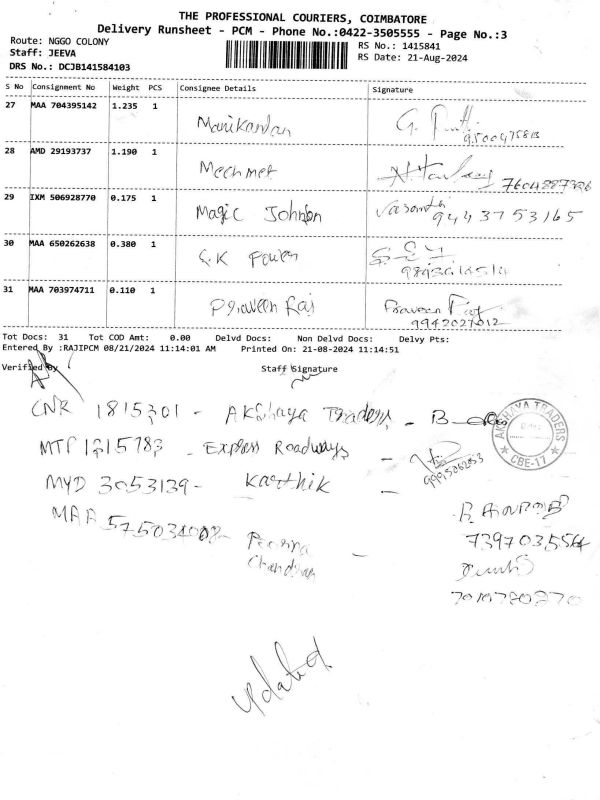 THE PROFESSIONAL COURIERS, COIMBATORE
Delivery Runsheet - PCM - Phone No.:0422-3505555 - Page No.:3
Route: NGGO COLONY
Staff: JEEVA
DRS No.: DCJB141584103
RS No.: 1415841
RS Date: 21-Aug-2024
S No Consignment No Weight PCS Consignee Details Signature
27 MAA 704395142 1.235 1 Manikandan
28 AMD 29193737 1.190 1 Mechmet
29 IXM 506928770 0.175 1 Magic Johnson Vasantha 9443753165
30 MAA 650262638 0.380 1 S.K Power
31 MAA 703974711 0.110 1 Praveen Raj Praveen Raj 9942027012
Tot Docs: 31 Tot COD Amt: 0.00 Delvd Docs: Non Delvd Docs: Delvy Pts:
Entered By :RAJIPCM 08/21/2024 11:14:01 AM Printed On: 21-08-2024 11:14:51
Verified By Staff Signature
CNR 1815301 - Akshaya Traders -
AKSHAYA TRADERS
CBE-17
- Express Roadways -
MYD 3053139 - Karthik -
MAA
7397035564
updated